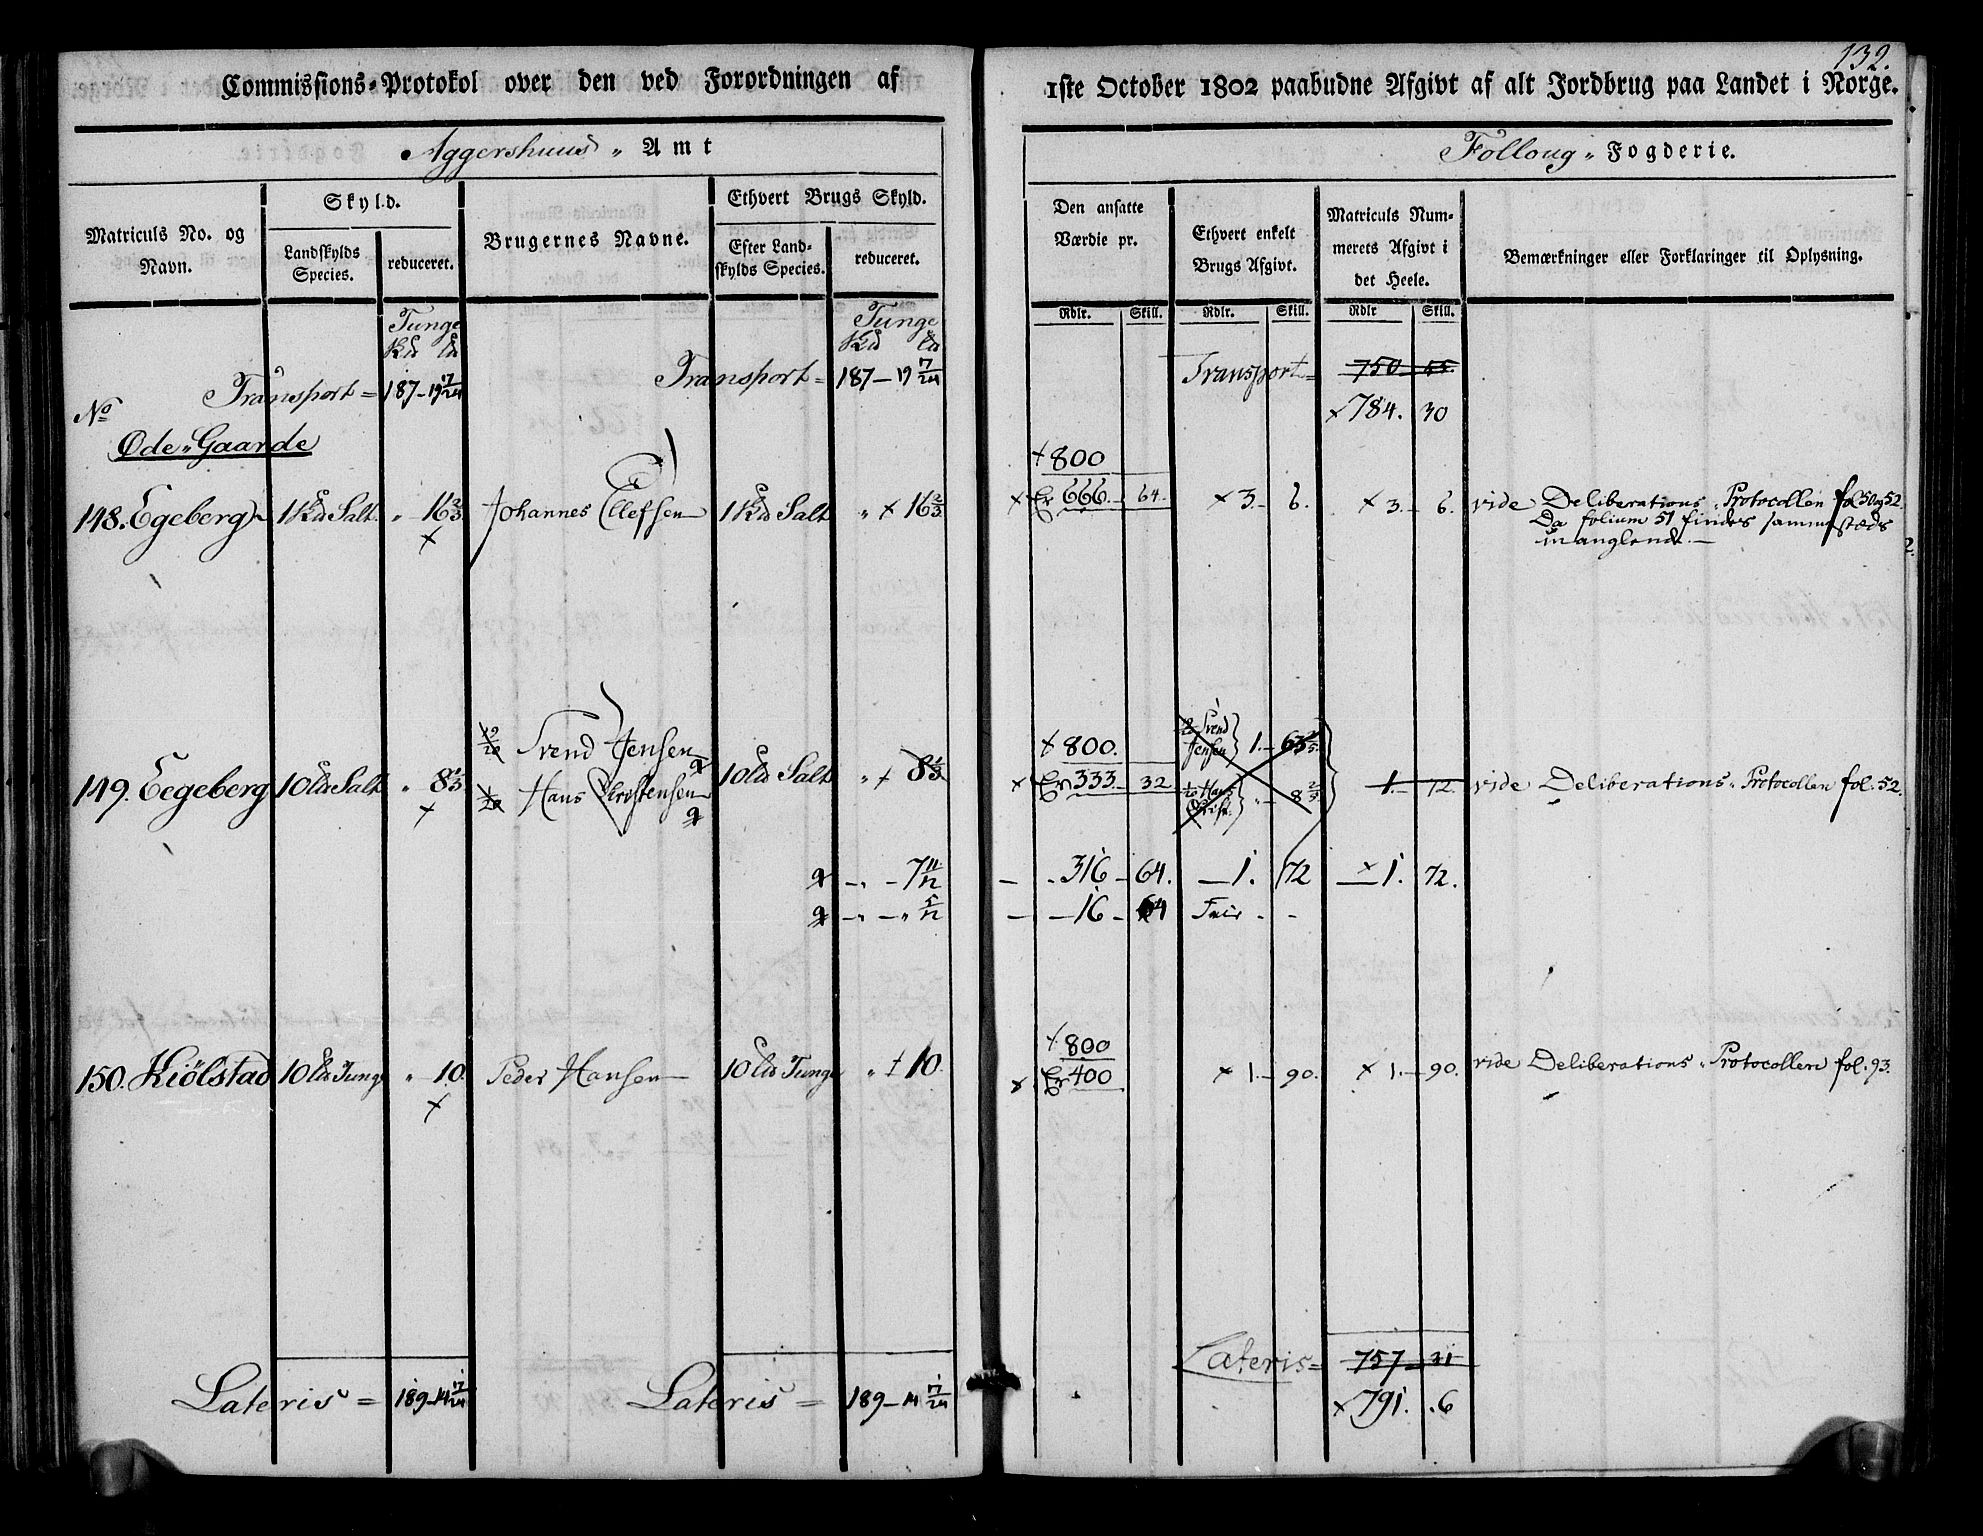 132.
Commissions-Protokol over den ved Forordningen af 1ste October 1802 paabudne Afgivt af alt Jordbrug paa Landet i Norge.
Aggershuus „ Amt
Follong „ Fogderie.
Matriculs No. og Navn.
Skyld.
Landskylds Species.
reduceret.
Brugernes Navne.
Ethvert Brugs Skyld.
Efter Landskylds Species.
reduceret.
Den ansatte Værdie pr.
Ethvert enkelt Brugs Afgivt.
Matriculs Nummerets Afgivt i det Heele.
Bemærkninger eller Forklaringer til Oplysning.
Rdlr. Skill. Rdlr. Skill. Rdlr Skill.
Tunge Tunge
Transport = 187 – 19 17/24 Transport = 187 – 19 17/24 Transport = 750 – 55.
No × 784. 30
Øde „ Gaarde
+ 800
148. Egeberg 1 Salt „ 16 2/3 Johannes Ellefsen 1 Salt „ × 16 2/3 × Er 666. – 64. × 3. – 6. × 3. – 6. vide Deliberations „ Protocollen fol 50 og 52.
Da folium 51 findes sammesteds
manglende. —
19/20 Svend Jensen + 800. 19/20 Svend Jensen } 1. – 63 3/5.
149. Eegeberg 10 Salt „ 8 1/3 10 Salt „ + 8 1/3 × Er 333. – 32 1. – 72. vide Deliberations „ Protocollen fol. 52.
1/20 Hans Christensen 1/20 Hans Christ. } „ – 8 2/5.
– „ – 7 11/12 – „ 316 – 64. – 1. 72 × 1. 72.
– „ – „ 5/12 – – 16 – 64 Frie - -
+ 800
150. Kiölstad 10 Tunge „ 10. Peder Hansen 10 Tunge „ + 10. × Er 400 × 1. – 90. × 1. – 90. vide Deliberations „ Protocollen fol. 93.
Lateris = 189 – 14 17/24 Lateris = 189 – 14 17/24 Lateris = 757 – 31
× 791. „ 6